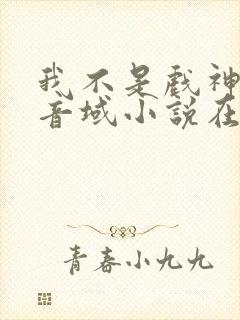 我不是戏神
音域小说在
青春小九九